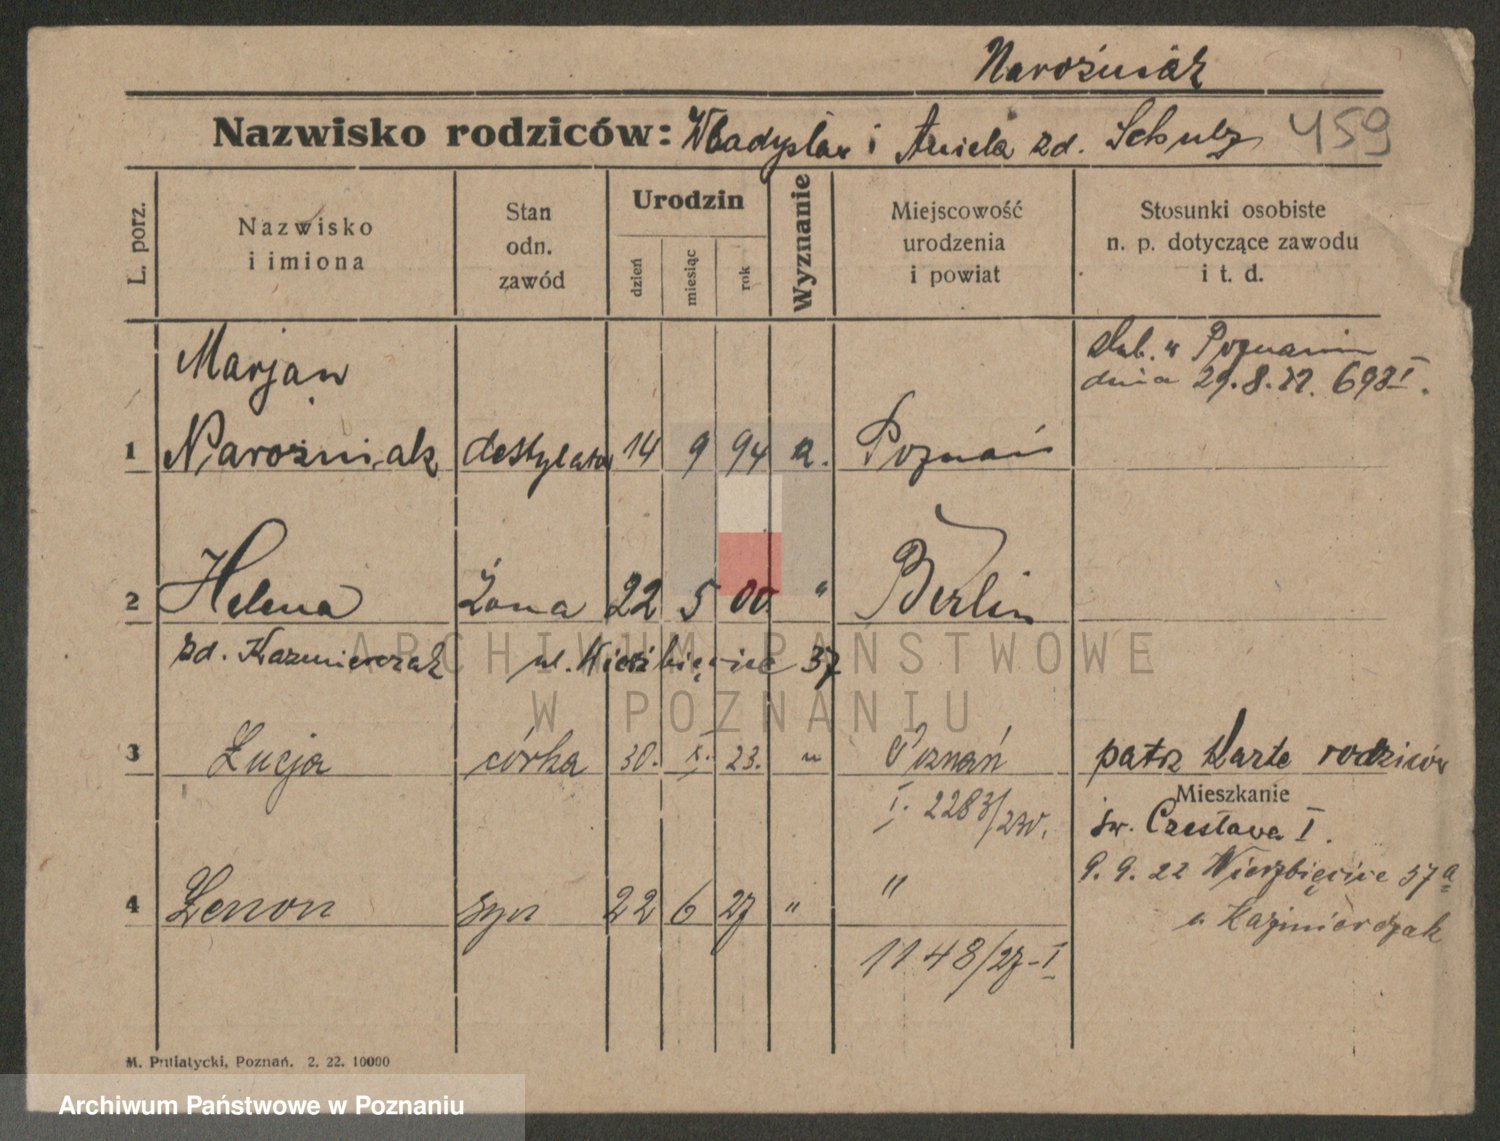 Narożniak
Nazwisko rodziców: Władysław i Aniela zd. Schulz 459
L. porz.
Nazwisko
i imiona
Stan
odn.
zawód
Urodzin
dzień
miesiąc
rok
Wyznanie
Miejscowość
urodzenia
i powiat
Stosunki osobiste
n. p. dotyczące zawodu
i t. d.
Marjan
ślub. w Poznaniu
dnia 29.8.22. 698I.
1 Narożniak destylator 14 9 94 Poznań
2 Helena Żona 22 5 00 " Berlin
zd. Kazmierczak ul. Wierzbięcice 37
3 Łucja córka 30. X. 23. " Poznań patrz kartę rodziców
I. 2283/230.
Mieszkanie
św. Czesława I.
9. 9. 22 Wierzbięcice 37a
u Kaźmierczak
4 Zenon syn 22 6 27 " "
1148/27-I
M. Putiatycki, Poznań. 2. 22. 10000
ARCHIWUM PAŃSTWOWE
W POZNANIU
Archiwum Państwowe w Poznaniu